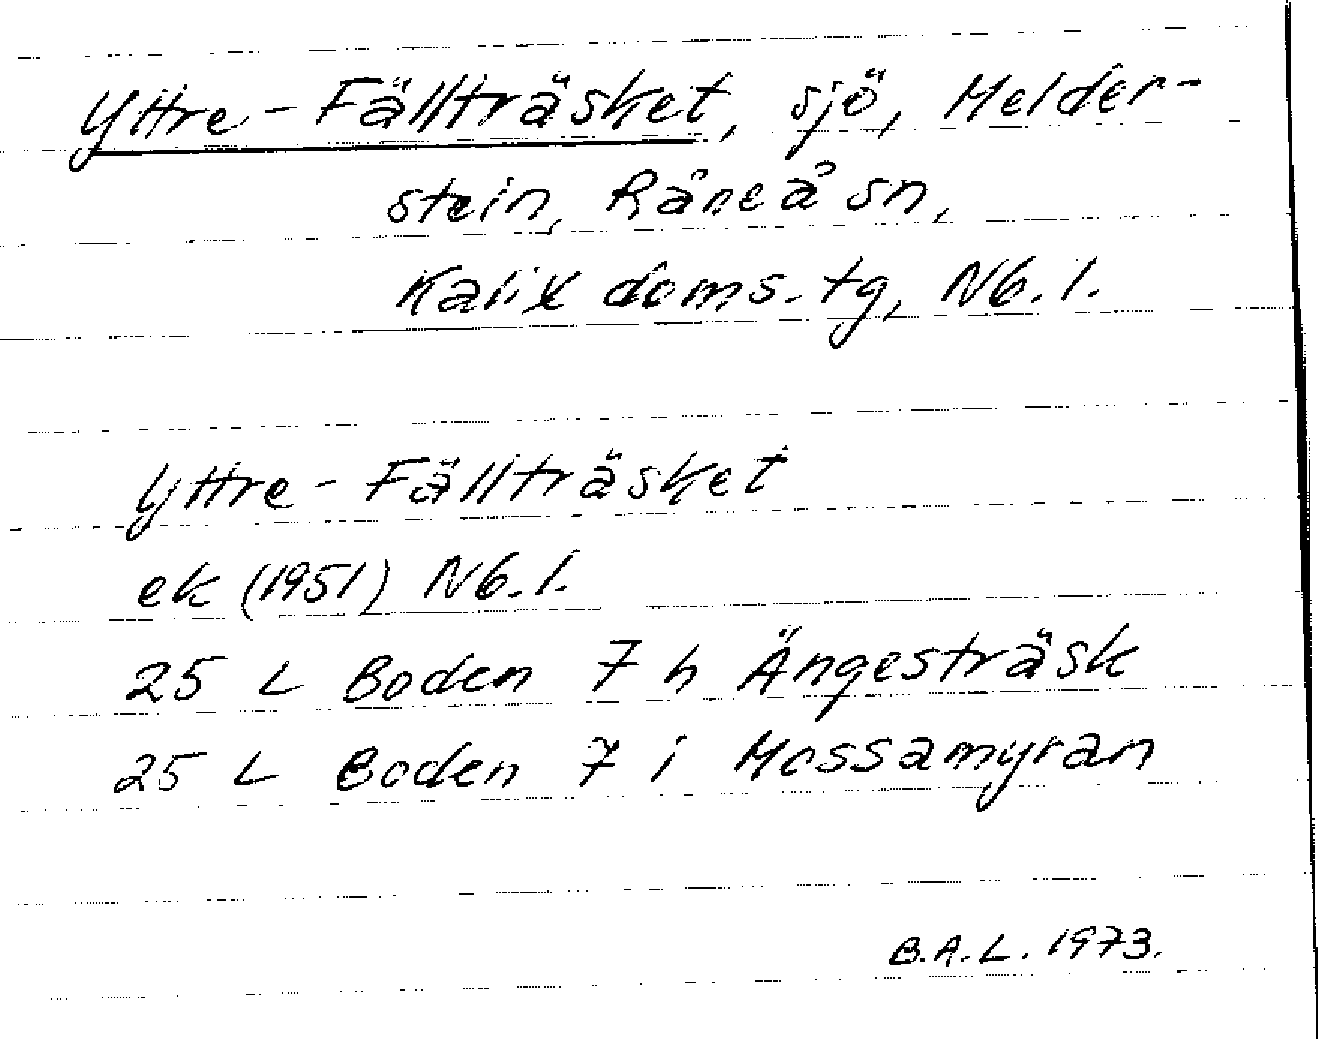 Yttre-Fällträsket, sjö, Melder-
stein, Råneå sn,
Kalix doms.tg, Nb. l.
Yttre-Fällträsket
ek (1951) Nb. l.
25 L Boden 7 h Ängesträsk
25 L Boden 7 i Mossamyran
B.A.L. 1973.